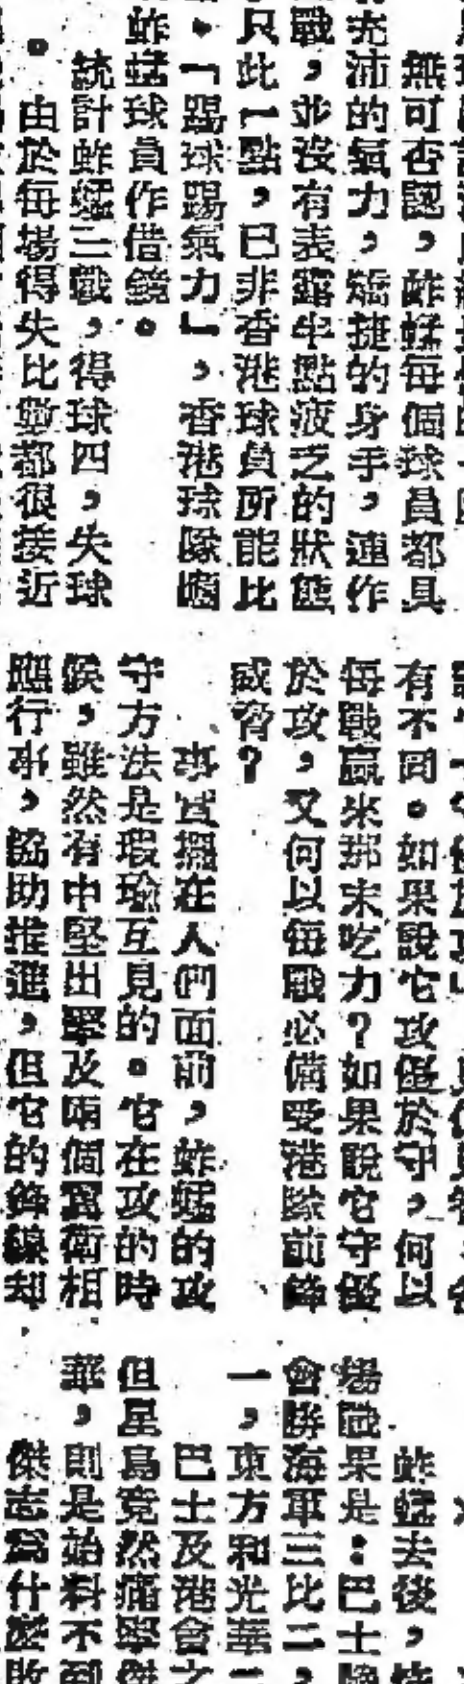 無可否認，蚱蜢每個球員都具
充沛的氣力，矯捷的身手，連作
戰，並沒有表露半點疲乏的狀態
只此一點，已非香港球員所能比
。「踢球踢氣力」，香港球隊應
蚱蜢球員作借鏡。
統計蚱蜢三戰，得球四，失球
。由於每場得失比數都很接近
有不同。如果說它攻優於守，何以
每戰贏來那末吃力？如果說它守優
於攻，又何以每戰必備受港隊前鋒
威脅？
事實擺在人們面前，蚱蜢的攻
守方法是瑕瑜互見的。它在攻的時
候，雖然有中堅出擊及兩個翼衛相
應行事，協助推進，但它的鋒線却
蚱蜢去後，
場戰果是：巴士
會勝海軍三比二，
一，東方和光華一
巴士及港會之
但星島竟然痛擊傑
華，則是始料不到
傑志爲什麼敗